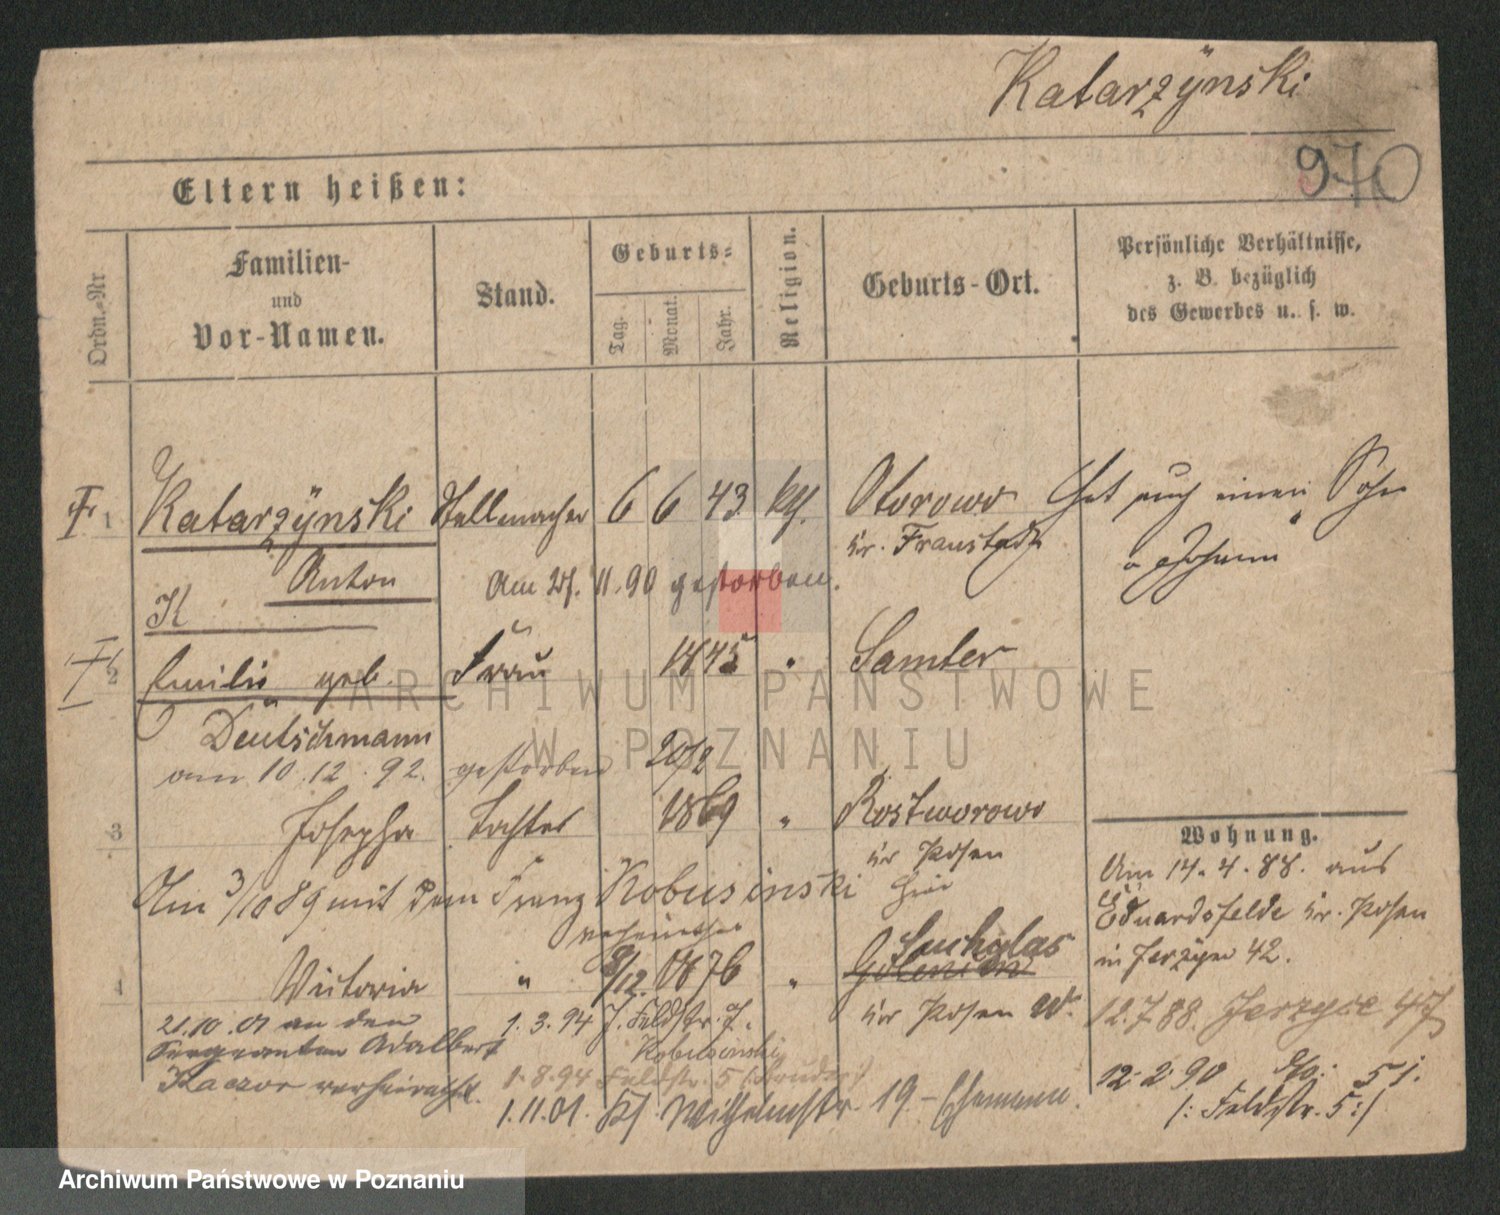 Katarzÿnski
970
Eltern heißen:
Ordn.-Nr
Familien-
und
Vor-Namen.
Stand.
Geburts-
Tag.
Monat.
Jahr.
Religion.
Geburts-Ort.
Persönliche Verhältnisse,
z. B. bezüglich
des Gewerbes u. s. w.
1 Katarzÿnski Stellmacher 6 6 43 kth. Otorowo Hat auch einen Sohn
Kr. Fraustadt
Anton
Johann
K
Am 27. 11. 90 gestorben.
2 Emilie geb. Frau 1845 " Samter
Deutschmann
am 10. 12. 92. gestorben
20/2
3 Josepha Tochter 1869 " Rostworowo
Kr Posen
Am 3/10 89 mit dem Franz Kobusinski hier
verheirathet
4 Victoria " 8/12. 1876 " Suchylas
Kr Posen W.
21.10.01 an den
Sergeanten Adalbert
Kaczor verheirathet.
1. 3. 94 J. Feldstr. 7.
Kobusinski
1. 8. 94 Feldstr. 5 (Bruder)
1. 11. 01. Wilhelmstr. 19 - Ehemann.
Wohnung.
Am 14. 4. 88. aus
Eduardsfelde Kr. Posen
in Jerzyce 42.
12. 7 88. Jerzyce 47
12. 2. 90 51.
/: Feldstr. 5 :/
ARCHIWUM PAŃSTWOWE
W POZNANIU
Archiwum Państwowe w Poznaniu